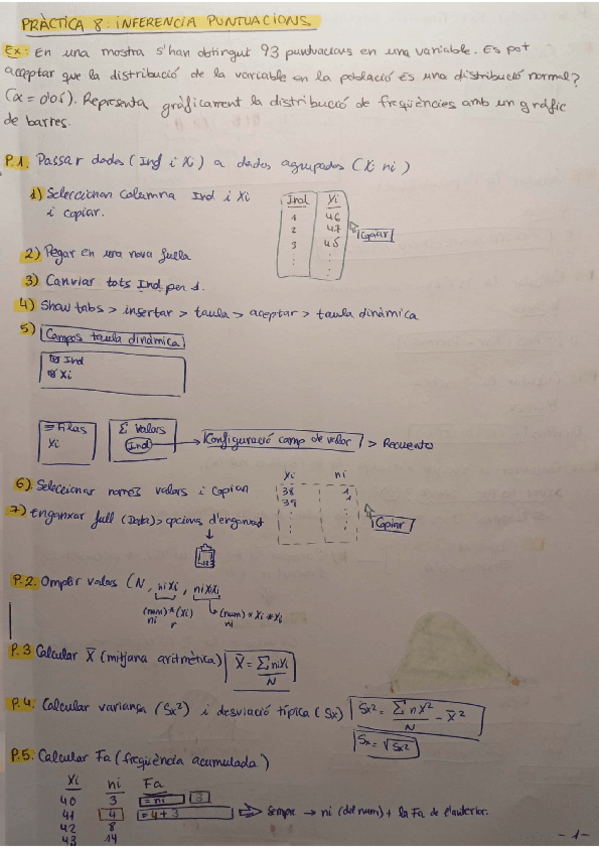 PRÀCTICA 8: INFERENCIA PUNTUACIONS
Ex: En una mostra s'han obtingut 93 puntuacions en una variable. Es pot
acceptar que la distribució de la variable en la població és una distribució normal?
(α = 0'05). Representa gràficament la distribució de freqüències amb un gràfic
de barres.
P.1. Passar dades (Ind i Xi) a dades agrupades (Xi ni)
1) Seleccionan columna Ind i Xi
i copiar.
Ind Yi
1 46
2 47
3 45
Copiar
2) Pegar en una nova fulla
3) Canviar tots Ind per 1.
4) Show tabs > insertar > taula > aceptar > taula dinàmica
5) Campos taula dinàmica
Ind
Xi
Filas
Yi
Σ Valors
Ind
Configuració camp de valor > Recuento
6) Seleccionar només valors i copian
Yi ni
38 1
39 1
Copiar
7) Enganxar full (Data) > opcions d'enganxat
P.2. Omplir valors (N, niXi, niXiXi
(num)*(Xi)
ni
(num) * Xi * Xi
ni
P.3 Calcular X̄ (mitjana aritmètica) X̄ = ΣniYi / N
P.4. Calcular variança (Sx²) i desviació típica (Sx) Sx² = Σ nX² / N - X̄²
Sx = √Sx²
P.5. Calcular Fa (freqüència acumulada)
Yi ni Fa
40 3 = ni 3
41 4 = 4+3 Sempre → ni (del num) + la Fa de l'anterior.
42 8
43 14
- 1 -